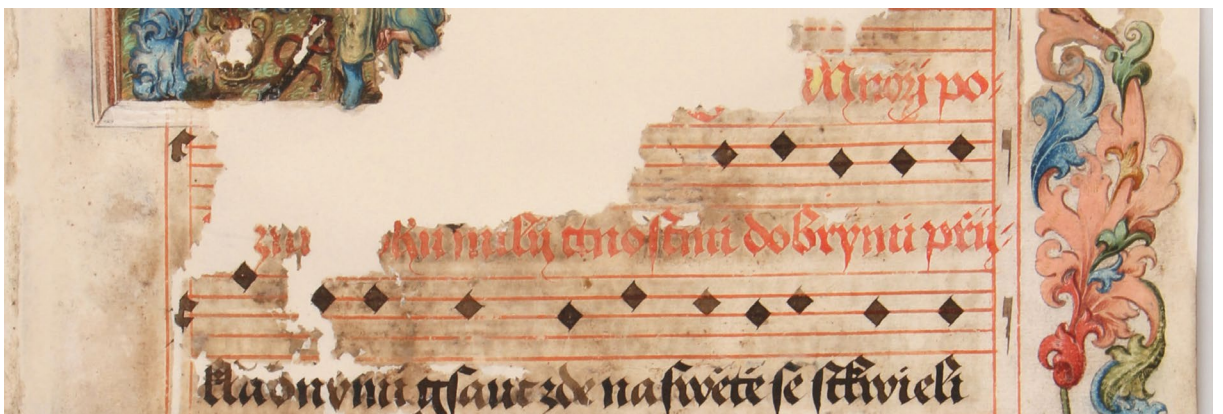 Mnozy po-
milij ctnostmi dobrymi přij-
Kladnymi gsauc zde na swěte se stkwieli